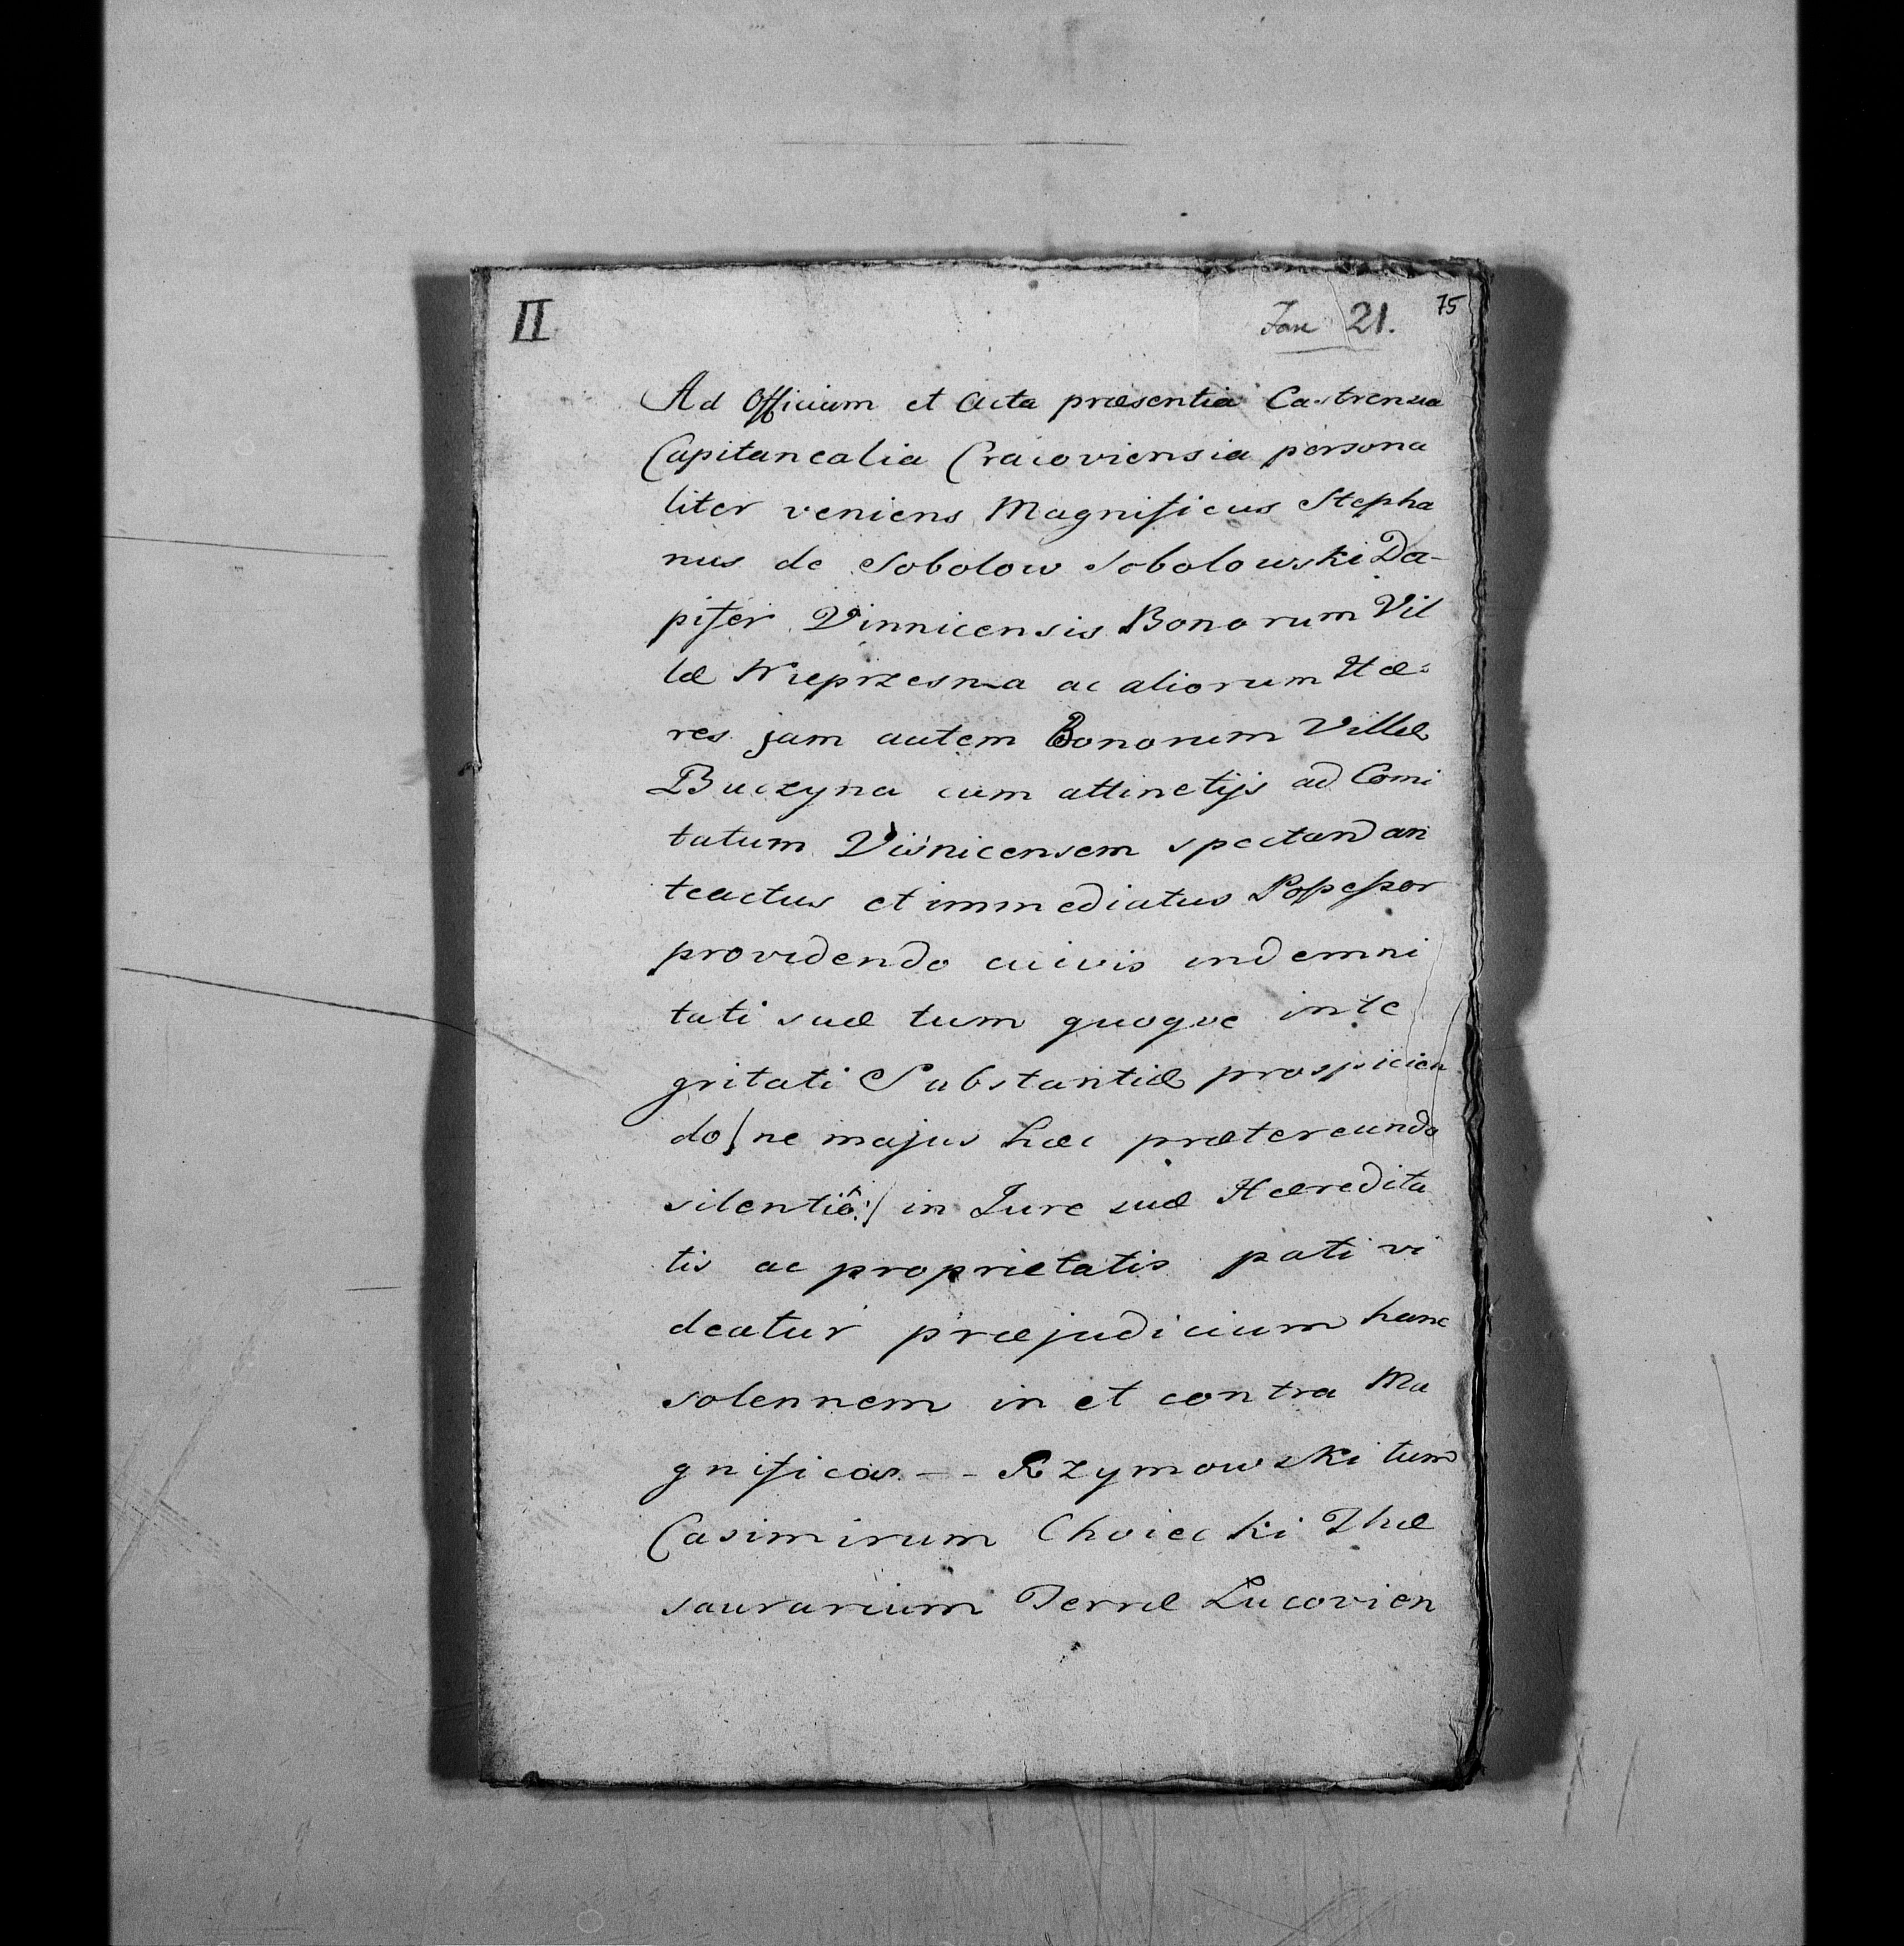 II
Fasc 21.
75
Ad Officium et Acta præsentia Castrensia
Capitanealia Cracoviensia persona
liter veniens Magnificus Stepha
nus de Sobolow Sobolowski Da-
pifer Vinnicensis Bonorum Vil
læ Nieprzesna ac aliorum Hæ-
res jam autem Bonorum Villæ
Buczyna cum attinetijs ad Comi
tatum Visnicensem spectan an
teactus et immediatus Possessor
providendo cuivis indemni
tati suæ tum quoque inte
gritati Substantiæ prospicien
do /: ne majus hæc prætereundo
silentio :/ in Jure suæ Hæredita
tis ac proprietatis pati vi
deatur præjudicium hanc
solennem in et contra Ma
gnificos - - Rzymowski tum
Casimirum Choiecki The
saurarium Terræ Lucovien